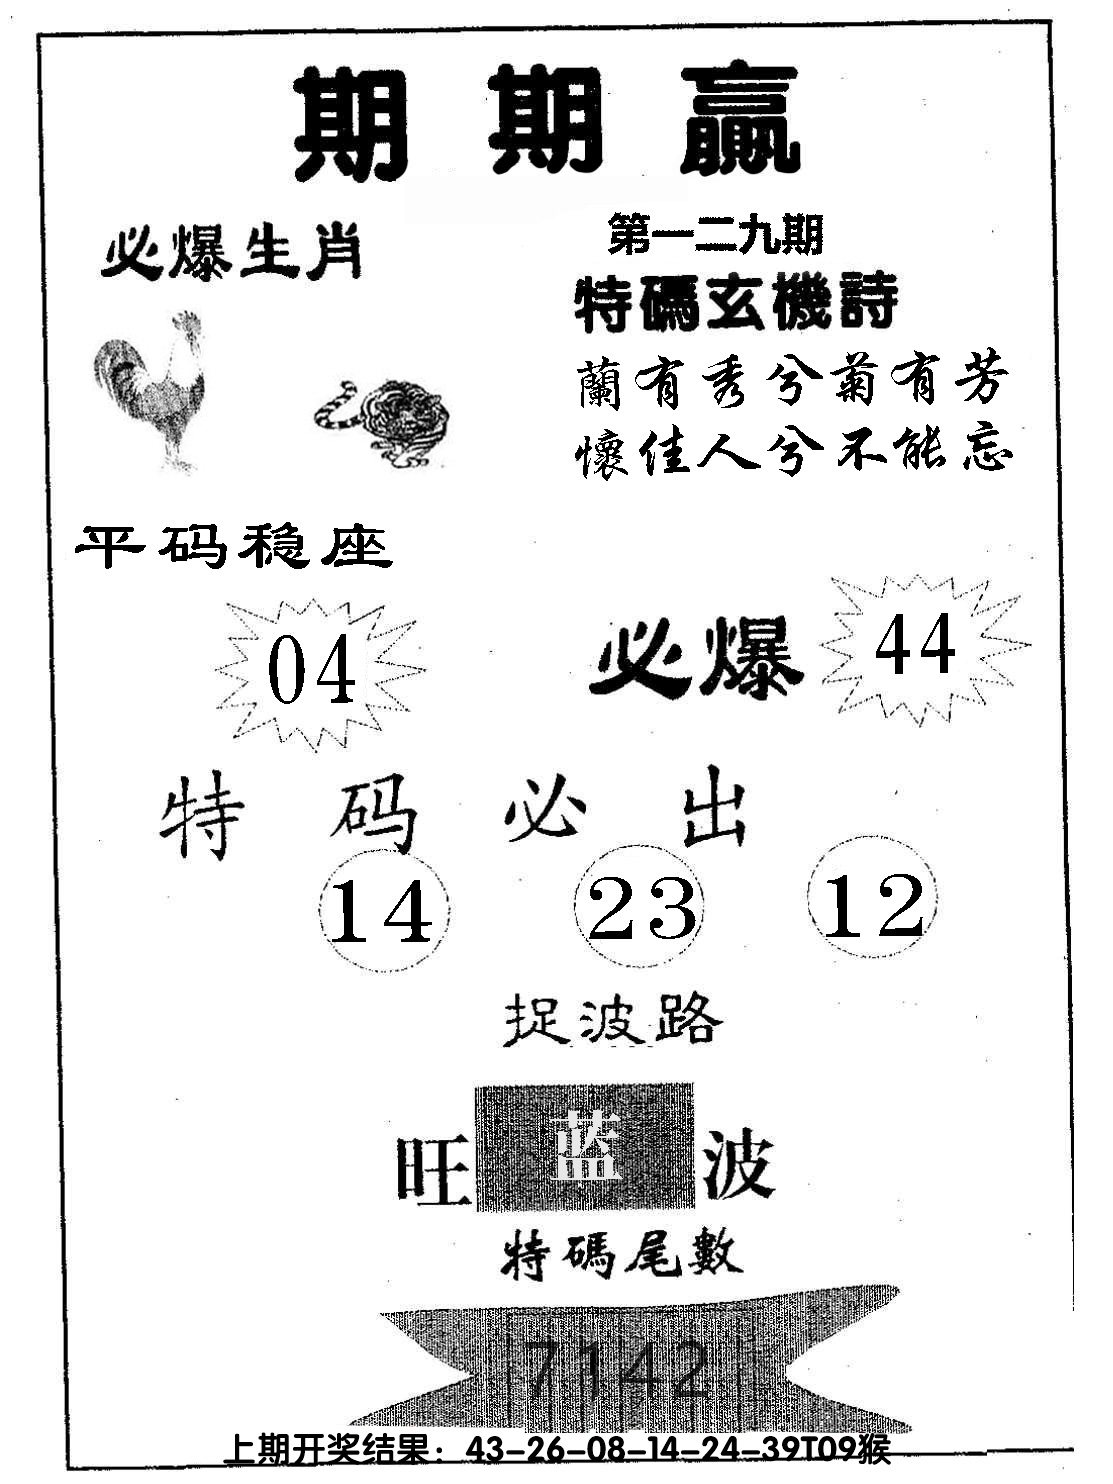 期期赢
第一二九期
必爆生肖
特碼玄機詩
蘭有秀兮菊有芳
懷佳人兮不能忘
平码稳座
04
必爆
44
特码必出
14 23 12
捉波路
旺蓝波
特碼尾數
7142
上期开奖结果：43-26-08-14-24-39T09猴